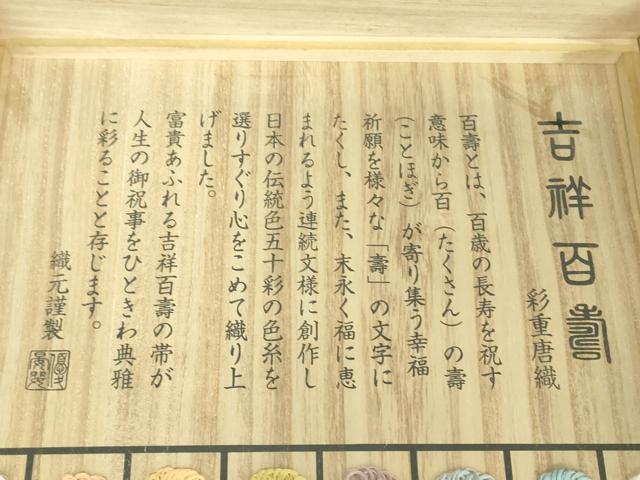 吉祥百壽
彩重唐織
百壽とは、百歳の長寿を祝す
意味から百（たくさん）の壽
（ことほぎ）が寄り集う幸福
祈願を様々な「壽」の文字に
たくし、また、末永く福に恵
まれるよう連続文様に創作し
日本の伝統色五十彩の色糸を
選りすぐり心をこめて織り上
げました。
富貴あふれる吉祥百壽の帯が
人生の御祝事をひときわ典雅
に彩ることと存じます。
織元謹製